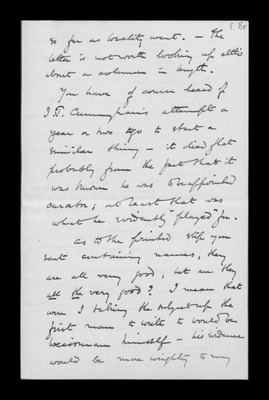 f. 8r
so far as locality went. — The
letter is not worth looking up & this
about a column in length.
You have of course heard of
J. T. Cunningham's attempt a
year or two ago to start a
similar thing — it died flat
probably from the fact that it
was known he was to be appointed
curator; at least that was
what he evidently "played" for.
As to the printed slip you
sent containing names, they
are all very good, but are they
all the very good? I mean that
were I taking the subject up the
first man to write to would be
himself — his evidence
would be more weighty to my